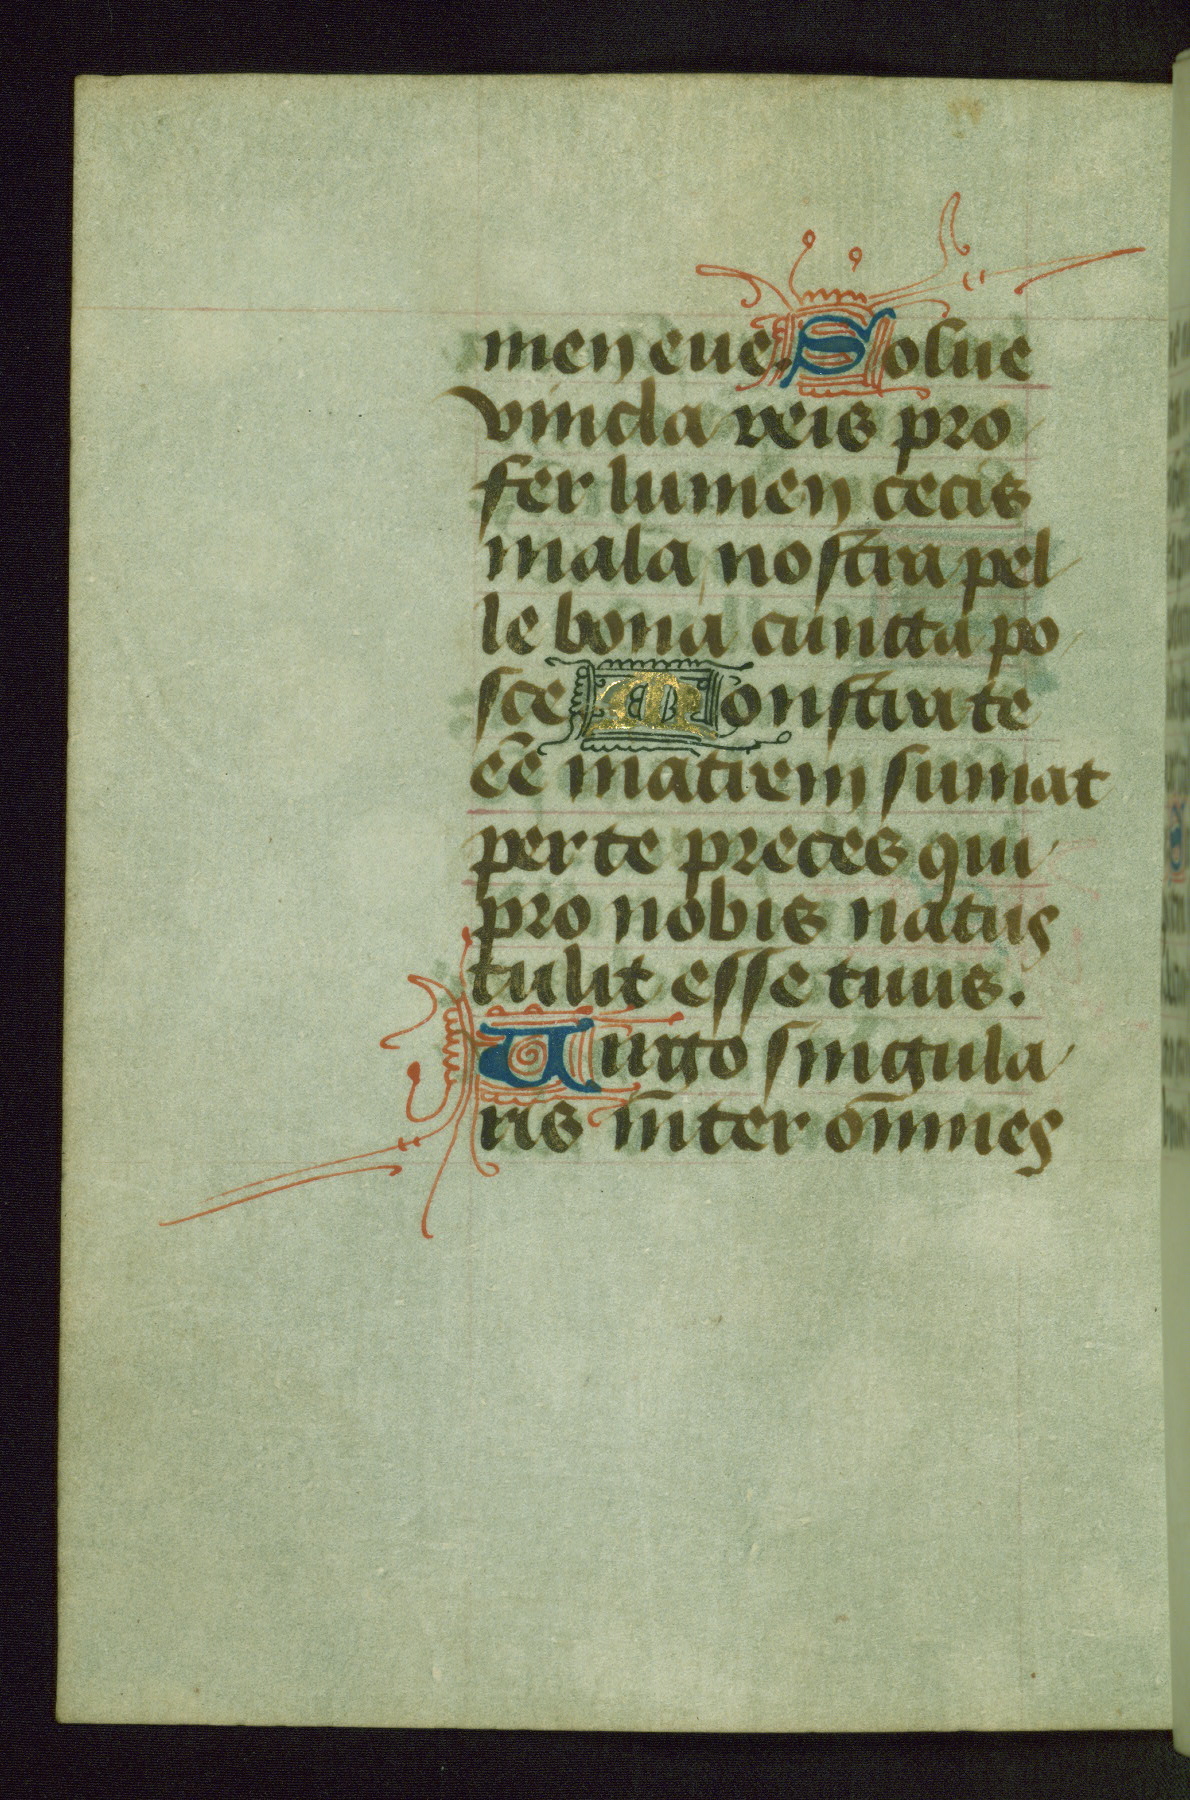 men eue. Solue
vincla reis pro
fer lumen cecis
mala nostra pel
le bona cuncta po
sce Monstra te
eē matrem sumat
per te preces qui
pro nobis natus
tulit esse tuus.
Uirgo singula
ris īnter om̄nes